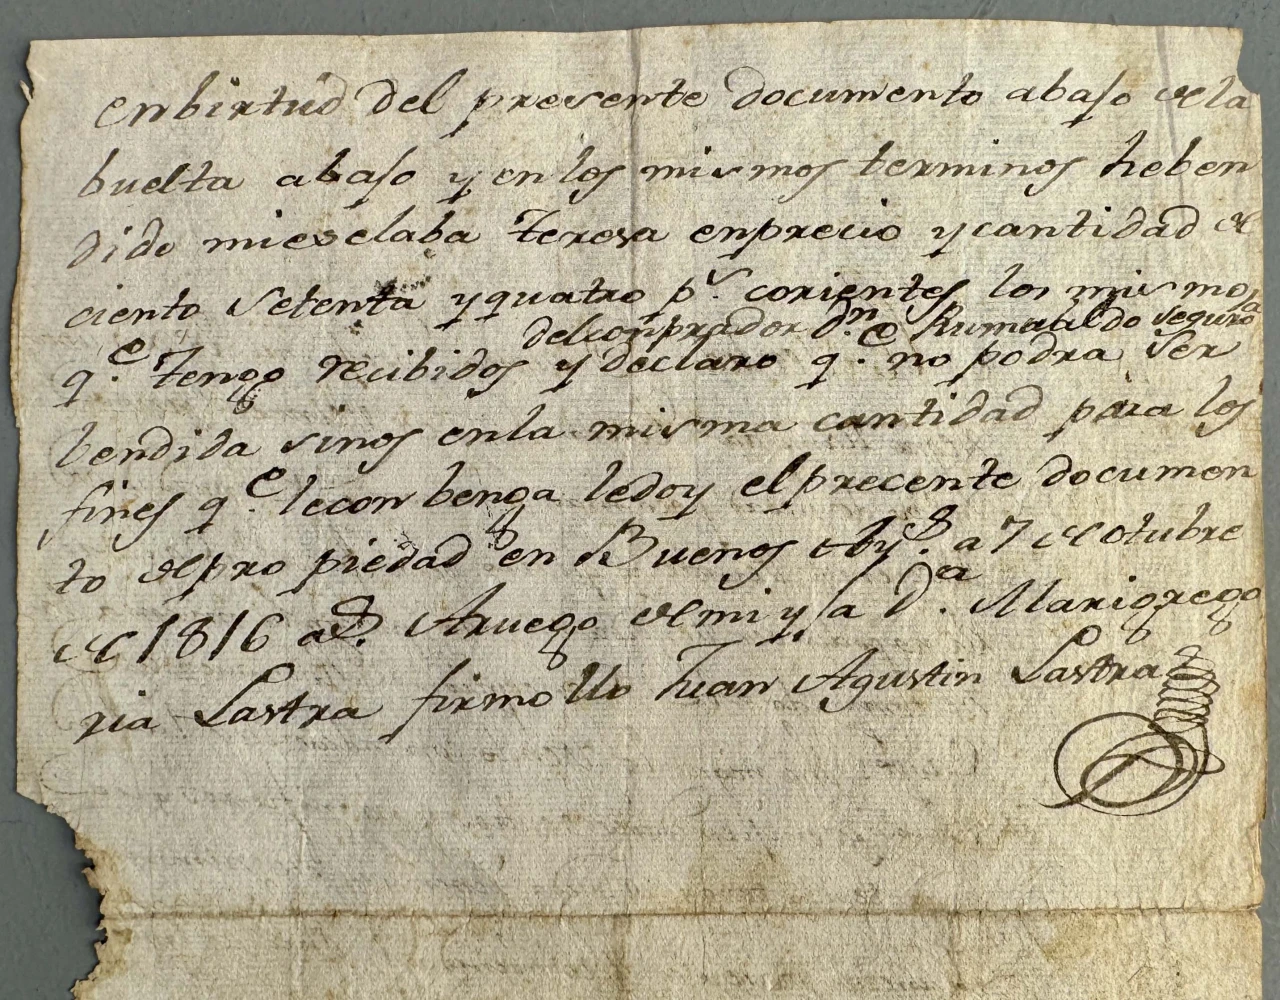 enbirtud del presente documento abajo de la
buelta abajo y en los mismos terminos heben
dido miesclaba Teresa enprecio y cantidad de
ciento setenta y quatro ps. corientes los mismos
delconprador Dn. Rumualdo segurola
qe. Tengo recibidos y declaro qe. no podra ser
bendida sinos enla misma cantidad para los
fines qe. lecon benga ledoy el precente documen
to de pro piedad en Buenos Ays. a 7 de otubre
de 1816 as. Aruego de mi ya Da. Mariagrego
ria Lastra firmo llo Juan Agustin Lastra